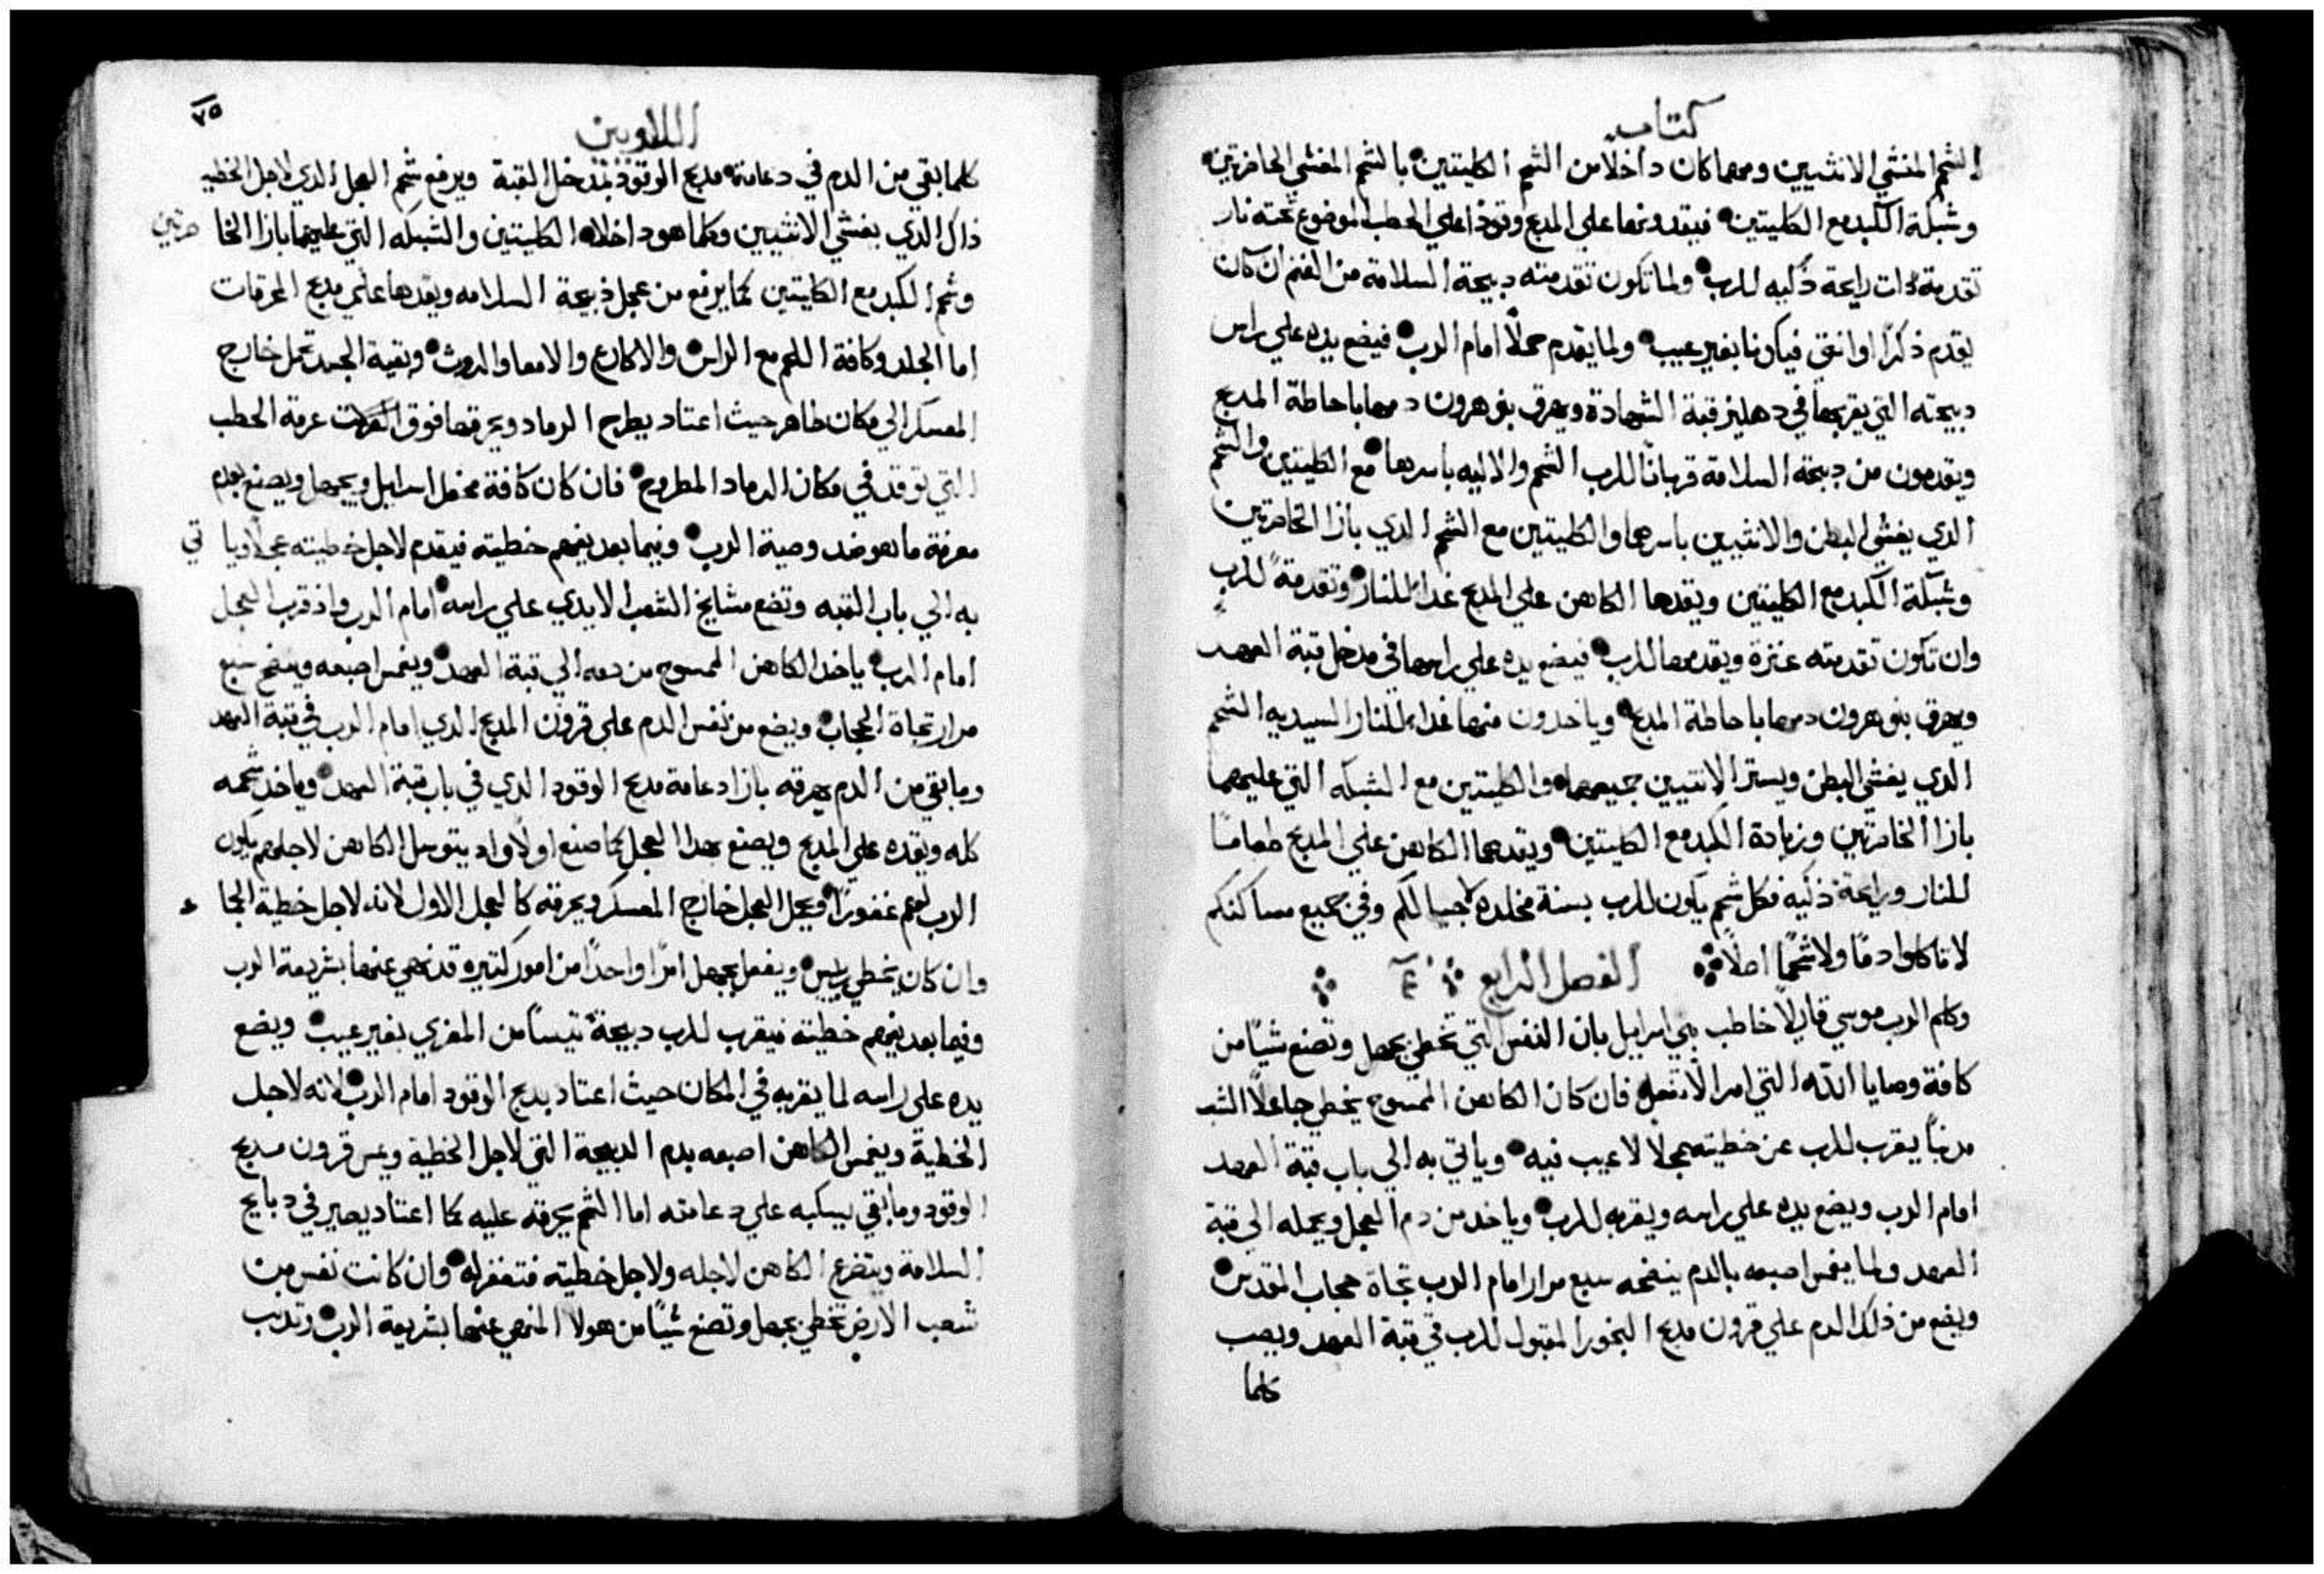 كتاب
الشحم المغشي الانثيين ومهما كان داخلا من الشحم الكليتين بالشحم المغشي الخاصرتين
وشبكة الكبد مع الكليتين فيقدونها علي المدبح وتوذا علي الحطب الموضوع تحته نار
تقدمة ذات رايحة ذكيه للرب ولما تكون تقدمته دبيحة السلامة من الغنم ان كان
يقدم ذكرًا او انثي فيكونا بغير عيب ولما يقدم حملًا امام الرب فيضع يده علي راس
دبيحته التي يقربها في دهليز قبة الشهادة ويهرق بنو هرون دمها باحاطة المدبح
ويقدمون من دبيحة السلامة قربانًا للرب الشحم والاليه باسرها مع الكليتين والشحم
الدي يغشي البطن والانثيين باسرهما والكليتين مع الشحم الدي بازا الخاصرتين
وشبكة الكبد مع الكليتين ويقدها الكاهن علي المدبح غداءً للنار وتقدمةً للرب
وان تكون تقدمته عنزة ويقدمها للرب فيضع يده علي راسها في مدخل قبة العهد
ويهرق بنو هرون دمها باحاطة المدبح وياخدون منها غداء للنار السيديه الشحم
الدي يغشي البطن ويستر الانثيين جميعهما والكليتين مع الشبكه التي عليهما
بازا الخاصرتين وزيادة الكبد مع الكليتين ويقدهما الكاهن علي المدبح طعامًا
للنار ورايحة ذكيه فكل شحم يكون للرب بسنة مخلده لاجيالكم وفي جميع مساكنكم
لا تاكلوا دمًا ولا شحمًا اصلًا الفصل الرابع
وكلم الرب موسي قايلًا خاطب بني اسراييل بان النفس التي تخطي بجهل وتصنع شيًا من
كافة وصايا الله التي امر الا تفعل فان كان الكاهن الممسوح يخطي جاعلًا الشعب
مدنبًا يقرب للرب عن خطيته عجلا لا عيب فيه وياتي به الي باب قبة العهد
امام الرب ويضع يده علي راسه ويقربه للرب وياخد من دم العجل ويحمله الي قبة
العهد ولما يغمس اصبعه بالدم ينضحه سبع مرار امام الرب تجاة حجاب المقدس
ويضع من ذلك الدم علي قرون مدبح البخور المقبول للرب في قبة العهد ويصب
كلما
٧٥
اللاويين
كلما بقي من الدم في دعامة مدبح الوقود بمدخل القبة ويرفع شحم العجل الدي لاجل الخطيه
ذاك الدي يغشي الانثيين وكلما هو داخلا الكليتين والشبكه التي عليهما بازا الخا صرتين
وشحم الكبد مع الكليتين كما يرفع من عجل ذبيحة السلامه ويقدها علي مدبح المحرقات
اما الجلد وكافة اللحم مع الراس والاكارع والامعا والروث وبقية الجسد تحمل خارج
المعسكر الي مكان طاهر حيث اعتاد يطرح الرماد ويحرقها فوق عرمة الحطب
التي توقد في مكان الرماد المطروح فان كان كافة محفل اسراييل ويجهل ويصنع بعدم
معرفة ما هو ضد وصية الرب وفيما بعد يفهم خطيته فيقدم لاجل خطيته عجلًا ويا تي
به الي باب القبه وتضع مشايخ الشعب الايدي علي راسه امام الرب واذ قرب العجل
امام الرب ياخد الكاهن الممسوح من دمه الي قبة العهد ويغمس اصبعه وينضح سبع
مرار تجاة الحجاب ويضع من نفس الدم علي قرون المدبح الدي امام الرب في قبة العهد
وما بقي من الدم يهرقه بازا دعامة مدبح الوقود الدي في باب قبة العهد وياخد شحمه
كله ويقده علي المدبح ويصنع بهدا العجل كما صنع اولًا واد يتوسل الكاهن لاجلهم يكون
الرب لهم غفورًا ويحمل العجل خارج المعسكر ويحرقه كالعجل الاول لانه لاجل خطية الجما عه
وان كان يخطي رييس ويفعل بجهل امرًا واحدًا من امور كتيره قد نهي عنها بشريعة الرب
وفيما بعد يفهم خطيته فيقرب للرب دبيحة تيسًا من المعزي بغير عيب ويضع
يده علي راسه لما يقربه في المكان حيث اعتاد يدبح الوقود امام الرب لانه لاجل
الخطية ويغمس الكاهن اصبعه بدم الدبيحة التي لاجل الخطية ويمس قرون مدبح
الوقود وما بقي يسكبه علي دعامته اما الشحم يحرقه عليه كما اعتاد يصير في دبايح
السلامة ويتضرع الكاهن لاجله ولاجل خطيته فتغفر له وان كانت نفس من
شعب الارض تخطي بجهل وتصنع شيًا من هولا المنهي عنها بشريعة الرب وتدنب